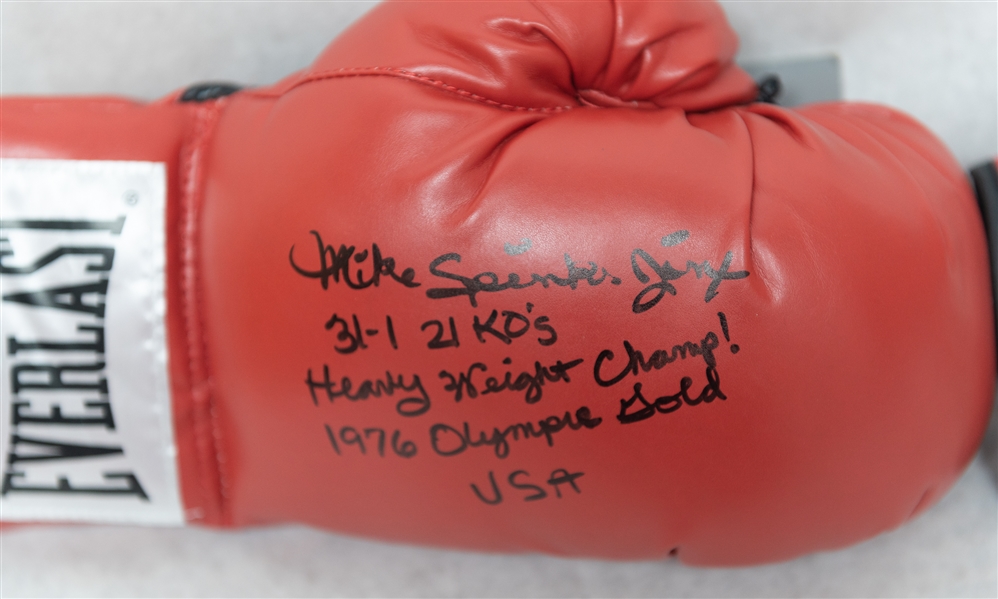 EVERLAST®
Mike Spinks Jinx
31-1 21 KO's
Heavy Weight Champ!
1976 Olympic Gold
USA